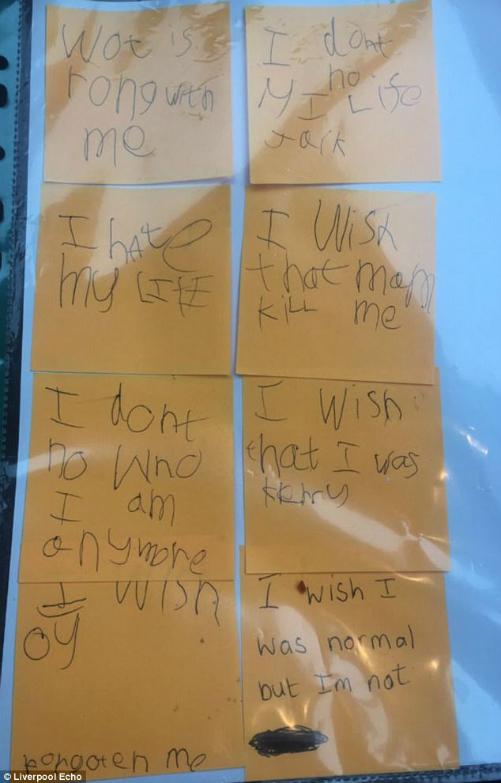 Wot is
rong with
me
I dont
no
My LIfe
Jack
I hate
my LIfE
I Wish
that mam
KiLL me
I dont
no who
I am
anymore
I Wish
that I was
I Wish
me
I wish I
was normal
but Im not
© Liverpool Echo